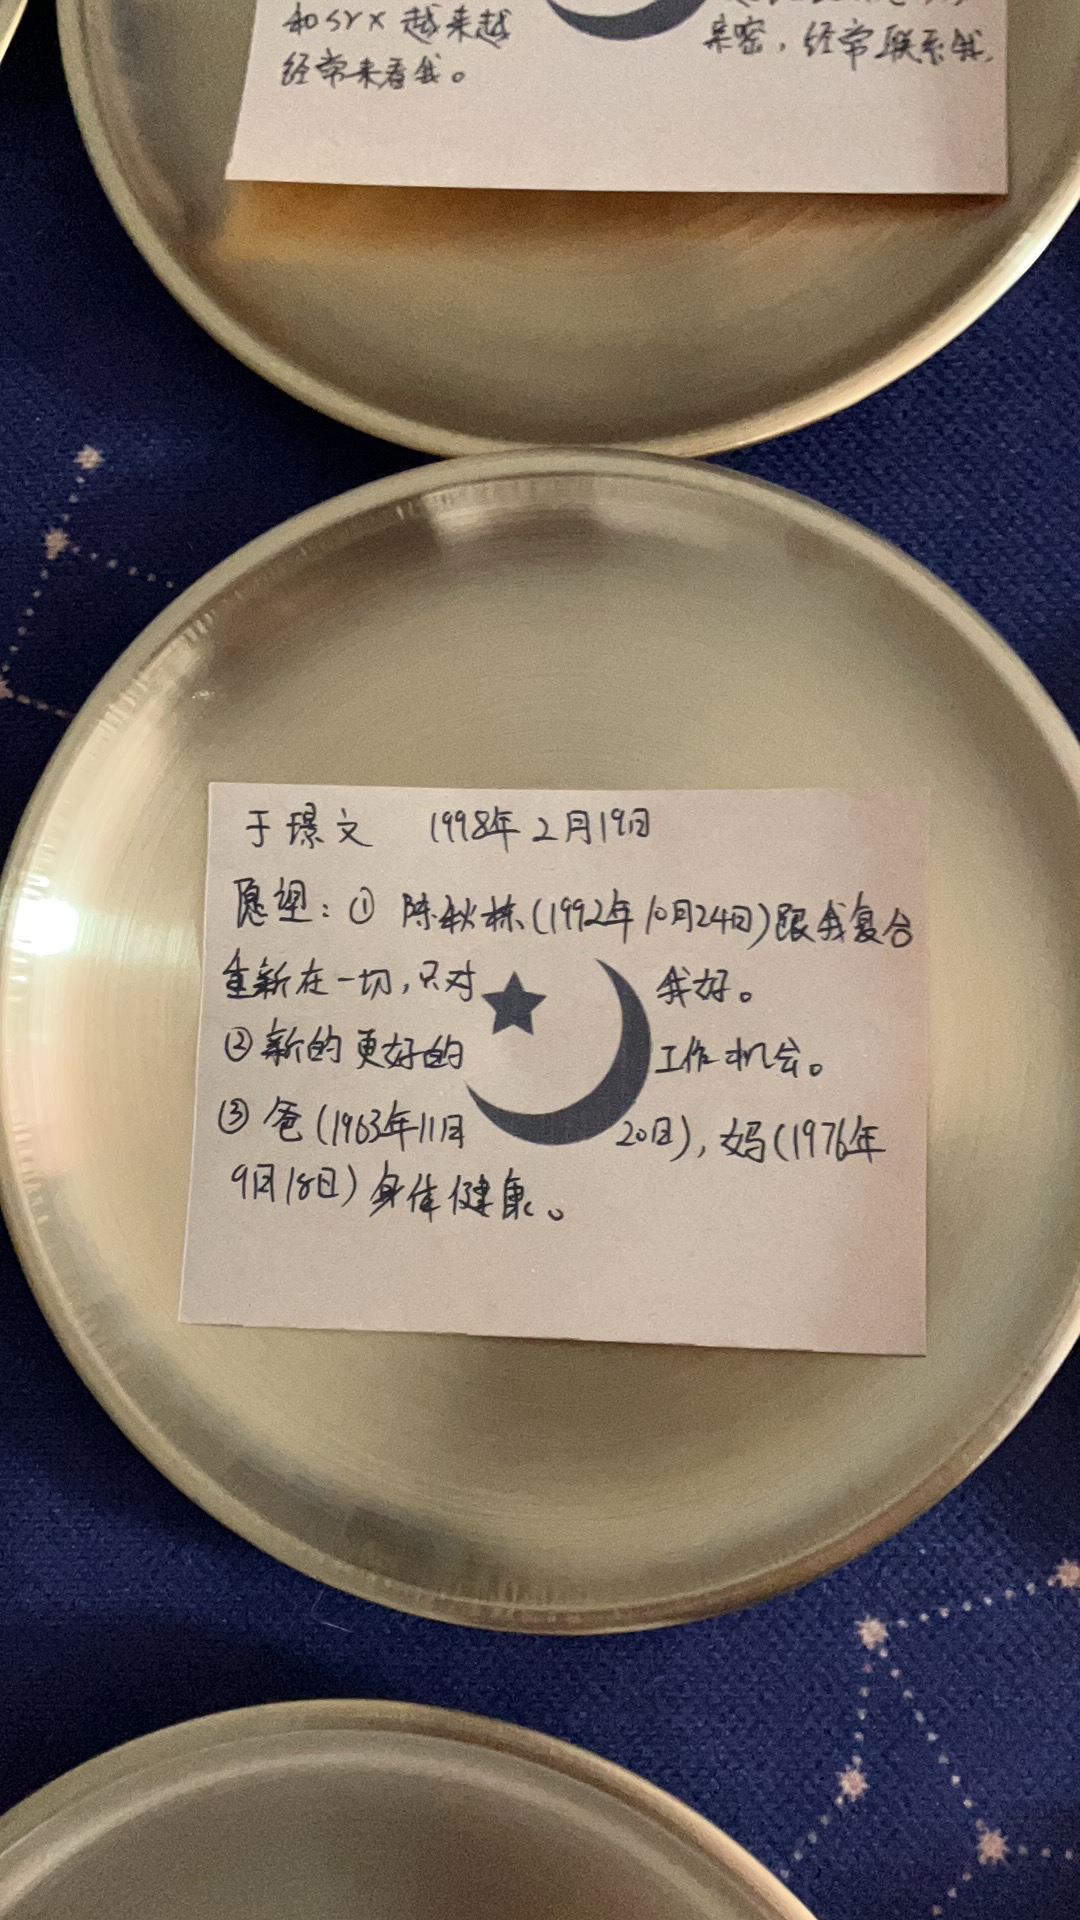 和srx 越来越 亲密，经常联系我，
经常来看我。
于璟文 1998年2月19日
愿望：① 陈秋栋(1992年10月24日)跟我复合
重新在一切，只对 我好。
②新的更好的 工作机会。
③ 爸(1963年11月 20日)，妈(1976年
9月18日)身体健康。